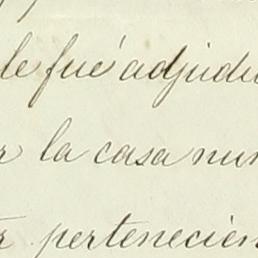 le fué adjudi
la casa num
pertenecien